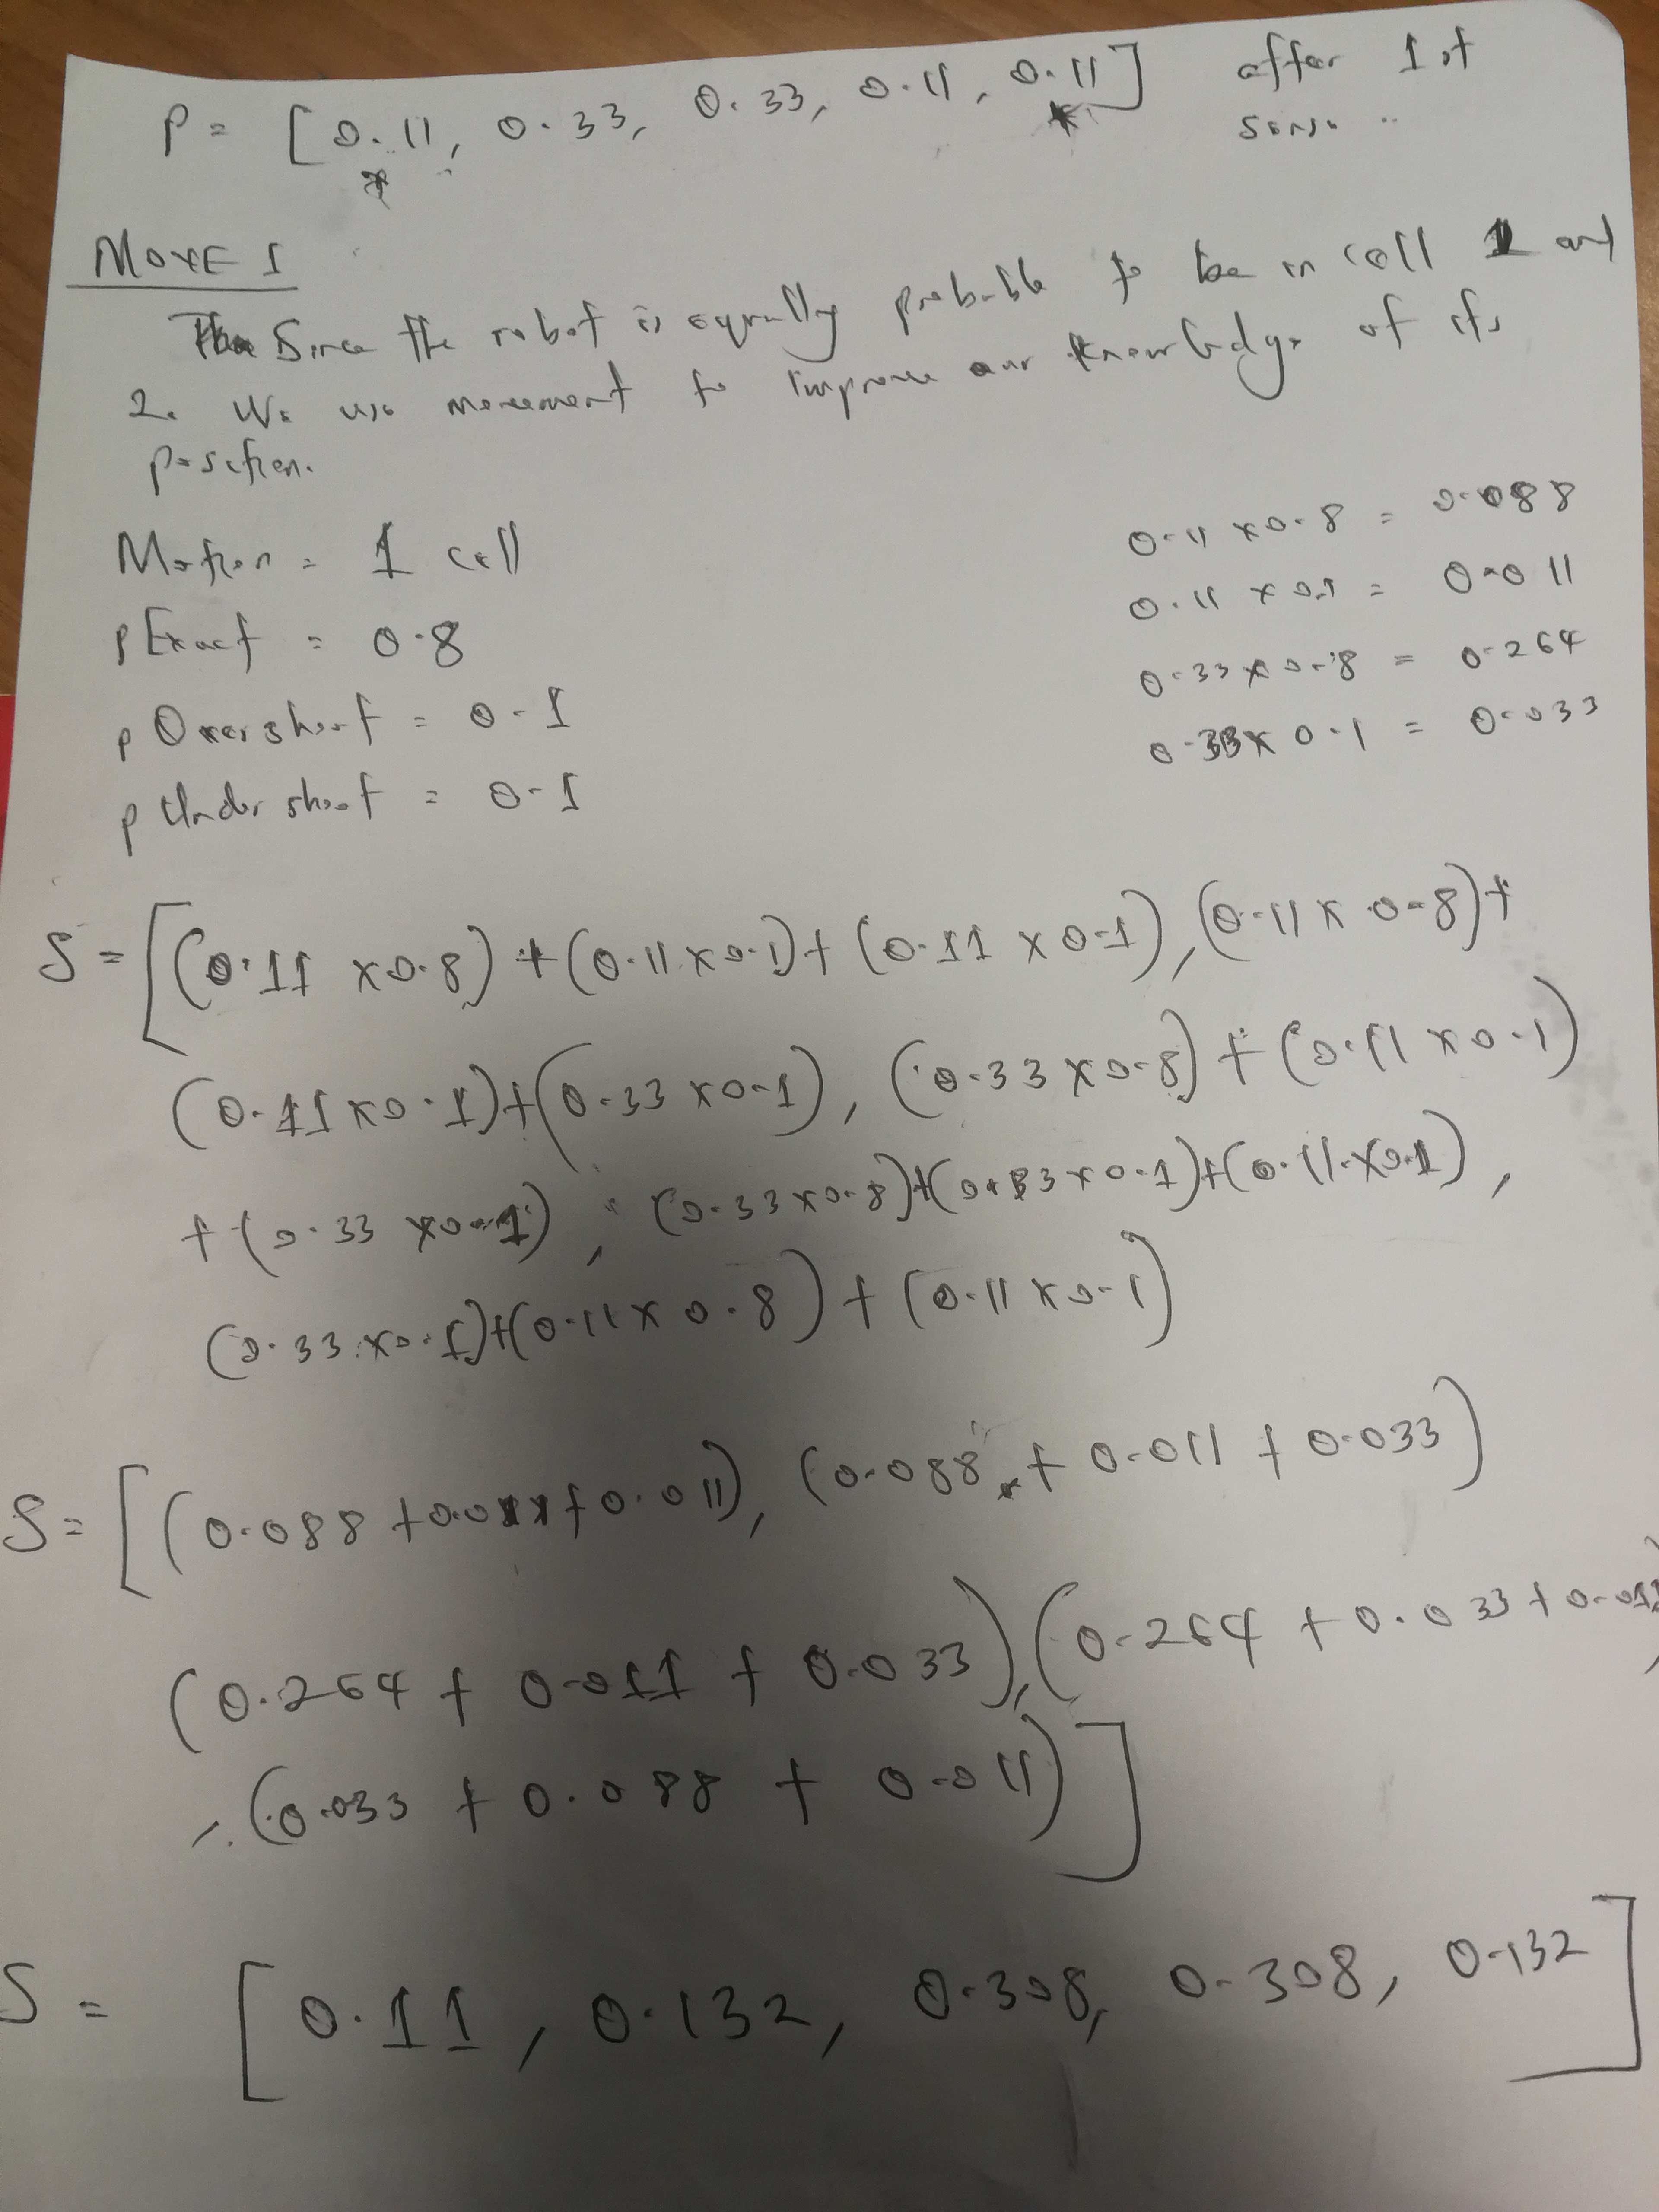 P = [0.11, 0.33, 0.33, 0.11, 0.11] after 1st
sense
MOVE 1
Since the robot is equally probable to be in cell 1 and
2. We use movement to improve our knowledge of its
position.
Motion = 1 cell
pExact = 0.8
pOvershoot = 0.1
pUndershoot = 0.1
0.11 x 0.8 = 0.088
0.11 x 0.1 = 0.011
0.33 x 0.8 = 0.264
0.33 x 0.1 = 0.033
S = [(0.11 x 0.8) + (0.11 x 0.1) + (0.11 x 0.1), (0.11 x 0.8) +
(0.11 x 0.1) + (0.33 x 0.1), (0.33 x 0.8) + (0.11 x 0.1)
+ (0.33 x 0.1), (0.33 x 0.8) + (0.33 x 0.1) + (0.11 x 0.1),
(0.33 x 0.1) + (0.11 x 0.8) + (0.11 x 0.1)
S = [(0.088 + 0.011 + 0.011), (0.088 + 0.011 + 0.033)
(0.264 + 0.011 + 0.033), (0.264 + 0.033 + 0.011)
, (0.033 + 0.088 + 0.011)]
S = [0.11, 0.132, 0.308, 0.308, 0.132]